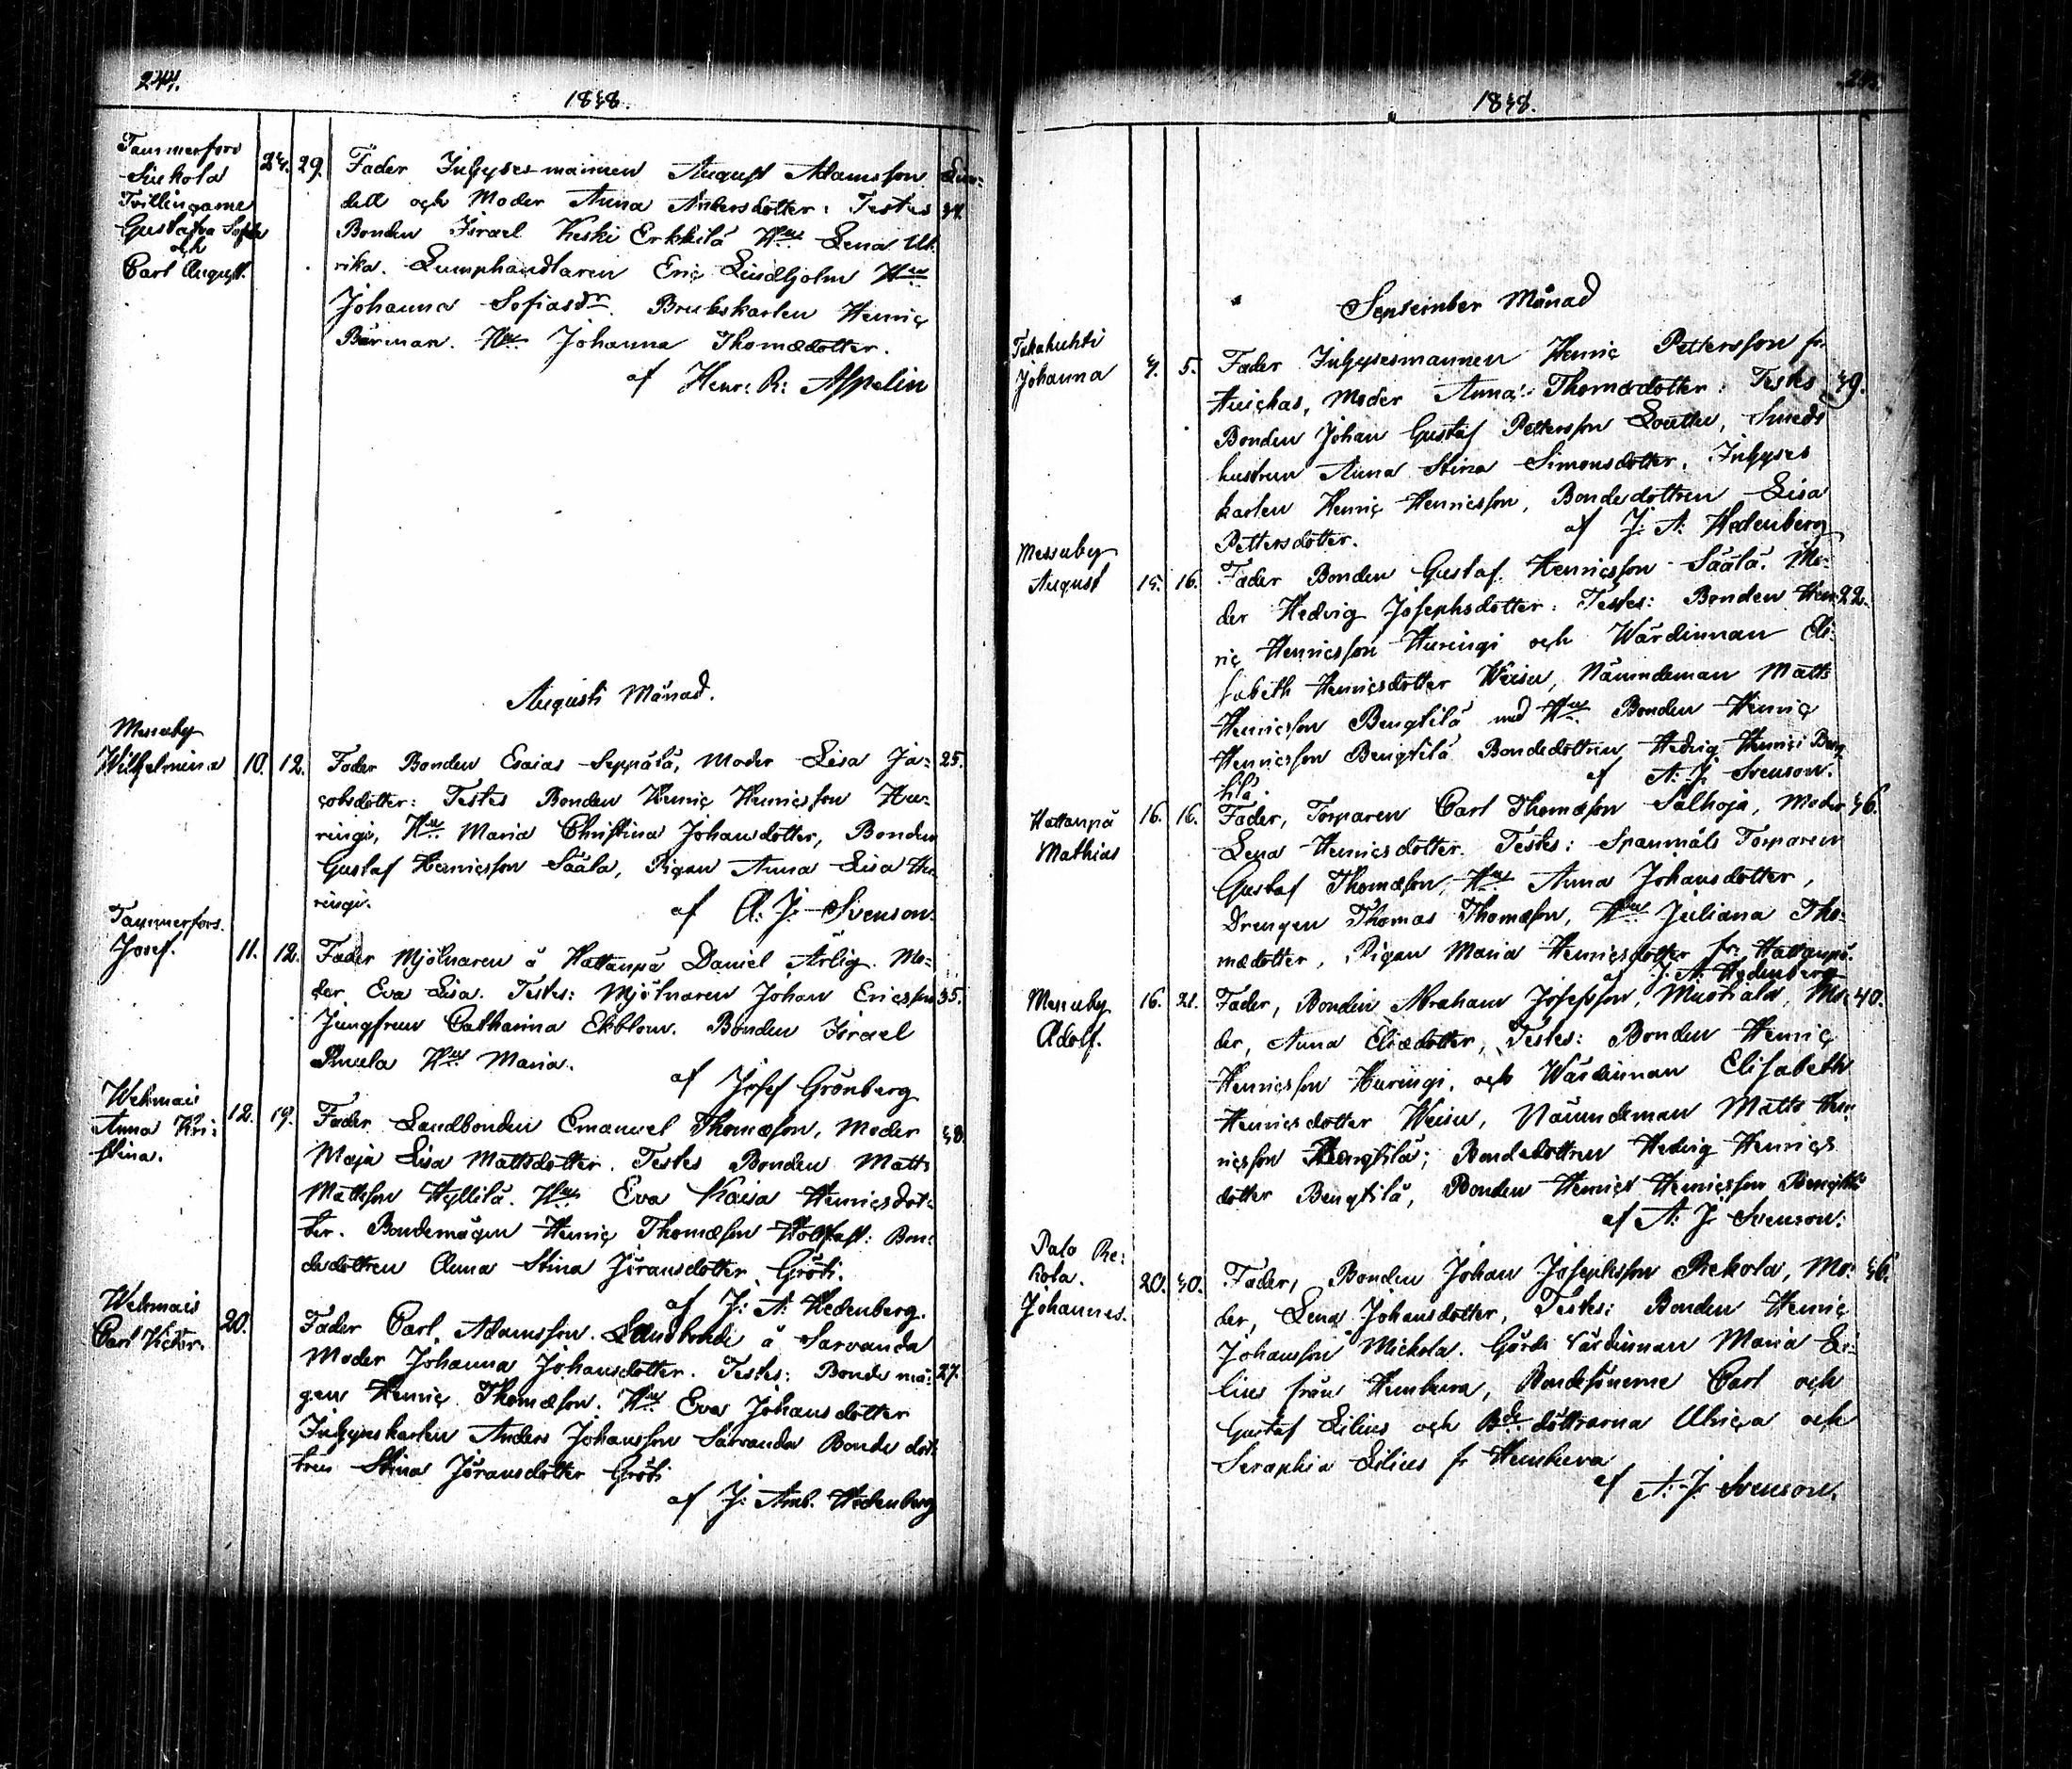 244.
1848.
Tammerfors
Siukola
Tvillingarne
Gustafva Sofia
och
Carl August.
24. 29. Fader Inhysesmannen August Adamsson
dell och Moder Anna Andersdotter: Testes 34.
Bonden Israel Keski Erkkilä Hu Lena Ul-
rika. Lumphandlaren Eric Lindholm Hu
Johanna Sofiasdr. Brukskarlen Henric
Bärman. Hu Johanna Thomædotter.
af Henr: R: Aspelin
Augusti Månad.
Messuby
Wilhelmina 10. 12. Fader Bonden Esaias Seppälä, Moder Lisa Ja- 25.
cobsdotter: Testes Bonden Henric Henricsson Hu-
ringi, Hu Maria Christina Johansdotter, Bonden
Gustaf Henricsson Säälä, Pigan Anna Lisa Hu-
ringi.
af A. J. Svenson.
Tammerfors.
Josef. 11. 12. Fader Mjölnaren å Hattanpä Daniel Ärlig. Mo-
der Eva Lisa. Testes: Mjölnaren Johan Ericsson 35.
Jungfrun Catharina Ekblom. Bonden Israel
Hu Maria.
af Josef Grönberg
Wehmais
Anna Kri-
stina.
12. 19. Fader Landbonden Emanuel Thomæson, Moder 48.
Maja Lisa Mattsdotter. Testes Bonden Matts
Mattsson Hyllilä. Hu Eva Kaisa Henricsdot-
ter. Bondemågen Henric Thomæson Bon-
dedottren Anna Stina Jöransdotter Gröti.
af J: A: Hedenberg.
Wehmais
Carl Victor. 20. Fader Carl Adamsson. Landbonde å Sarvanda
Moder Johanna Johansdotter. Testes: Bondemå- 27.
gen Henric Thomæson. Hu Eva Johansdotter
Inhyseskarlen Anders Johansson Sarvanda Bondedot-
tren Stina Jöransdotter Gröti
af J: Amb. Hedenberg
1848.
September Månad
Takahuhti
Johanna 4. 5. Fader Inhysesmannen Henric Pettersson fr.
Moder Anna Thomædotter: Testes 49.
Bonden Johan Gustaf Pettersson Smeds
hustrun Anna Stina Simonsdotter. Inhyses
karlen Henric Henricsson, Bondedottren Lisa
Pettersdotter. af J: A: Hedenberg
Messuby
August 15. 16. Fader Bonden Gustaf Henricsson Säälä. Mo-
der Hedvig Josephsdotter: Testes: Bonden Hen- 22.
ric Henricsson Huringi och Wärdinnan Eli-
sabeth Henricsdotter Weisu, Nämndeman Matts
Henricsson Bengtilä med Hu Bonden Henric
Henricsson Bengtilä Bondedottren Hedvig Henrici Beng-
tilä. af A. J. Svenson.
Hattanpä
Mathias 16. 16. Fader, Torparen Carl Thomæson Salhoja, Moder 36.
Lena Henricsdotter. Testes: Spanmåls Torparen
Gustaf Thomæson, Hu Anna Johansdotter,
Drengen Thomas Thomæson, Hu Juliana Tho-
mædotter, Pigan Maria Henricsdotter fr: Hattanpä.
af J: A: Hedenberg
Messuby
Adolf. 16. 21. Fader, Bonden Abraham Josefsson, Mustiala, Mo- 40.
der, Anna Eliædotter, Testes: Bonden Henric
Henricsson Huringi, och Wärdinnan Elisabeth
Henricsdotter Weisu, Nämndeman Matts Hen-
ricsson Bengtilä; Bondedottren Hedvig Henrics
dotter Bengtilä, Bonden Henric Henricsson Bengtilä
af A. J. Svenson.
Pala Re-
kola.
Johannes. 20. 30. Fader, Bonden Johan Josephsson Rekola, Mo- 36.
der, Lena Johansdotter, Testes: Bonden Henric
Johansson Mickola. Gårds värdinnan Maria Li-
lius från Bondesönerne Carl och
Gustaf Lilius och Bde döttrarna Ulrica och
Seraphia Lilius fr
af A. J. Svenson.